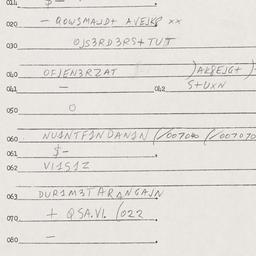 011 $ -
020 - QOWSMAJD+ AVEJKP xx
030 OJS3RD3RS+TUT
040 OFJEN3RZAT )AKPEJG+)
041 - 042 S+UXN
050 O
060 NU1NTF1NDAN1N (/007040 (/007070
061 $-
062 VI1S1Z
063 DUR1M3TARANGAJN
070 + QSA.VI. (022
080 -